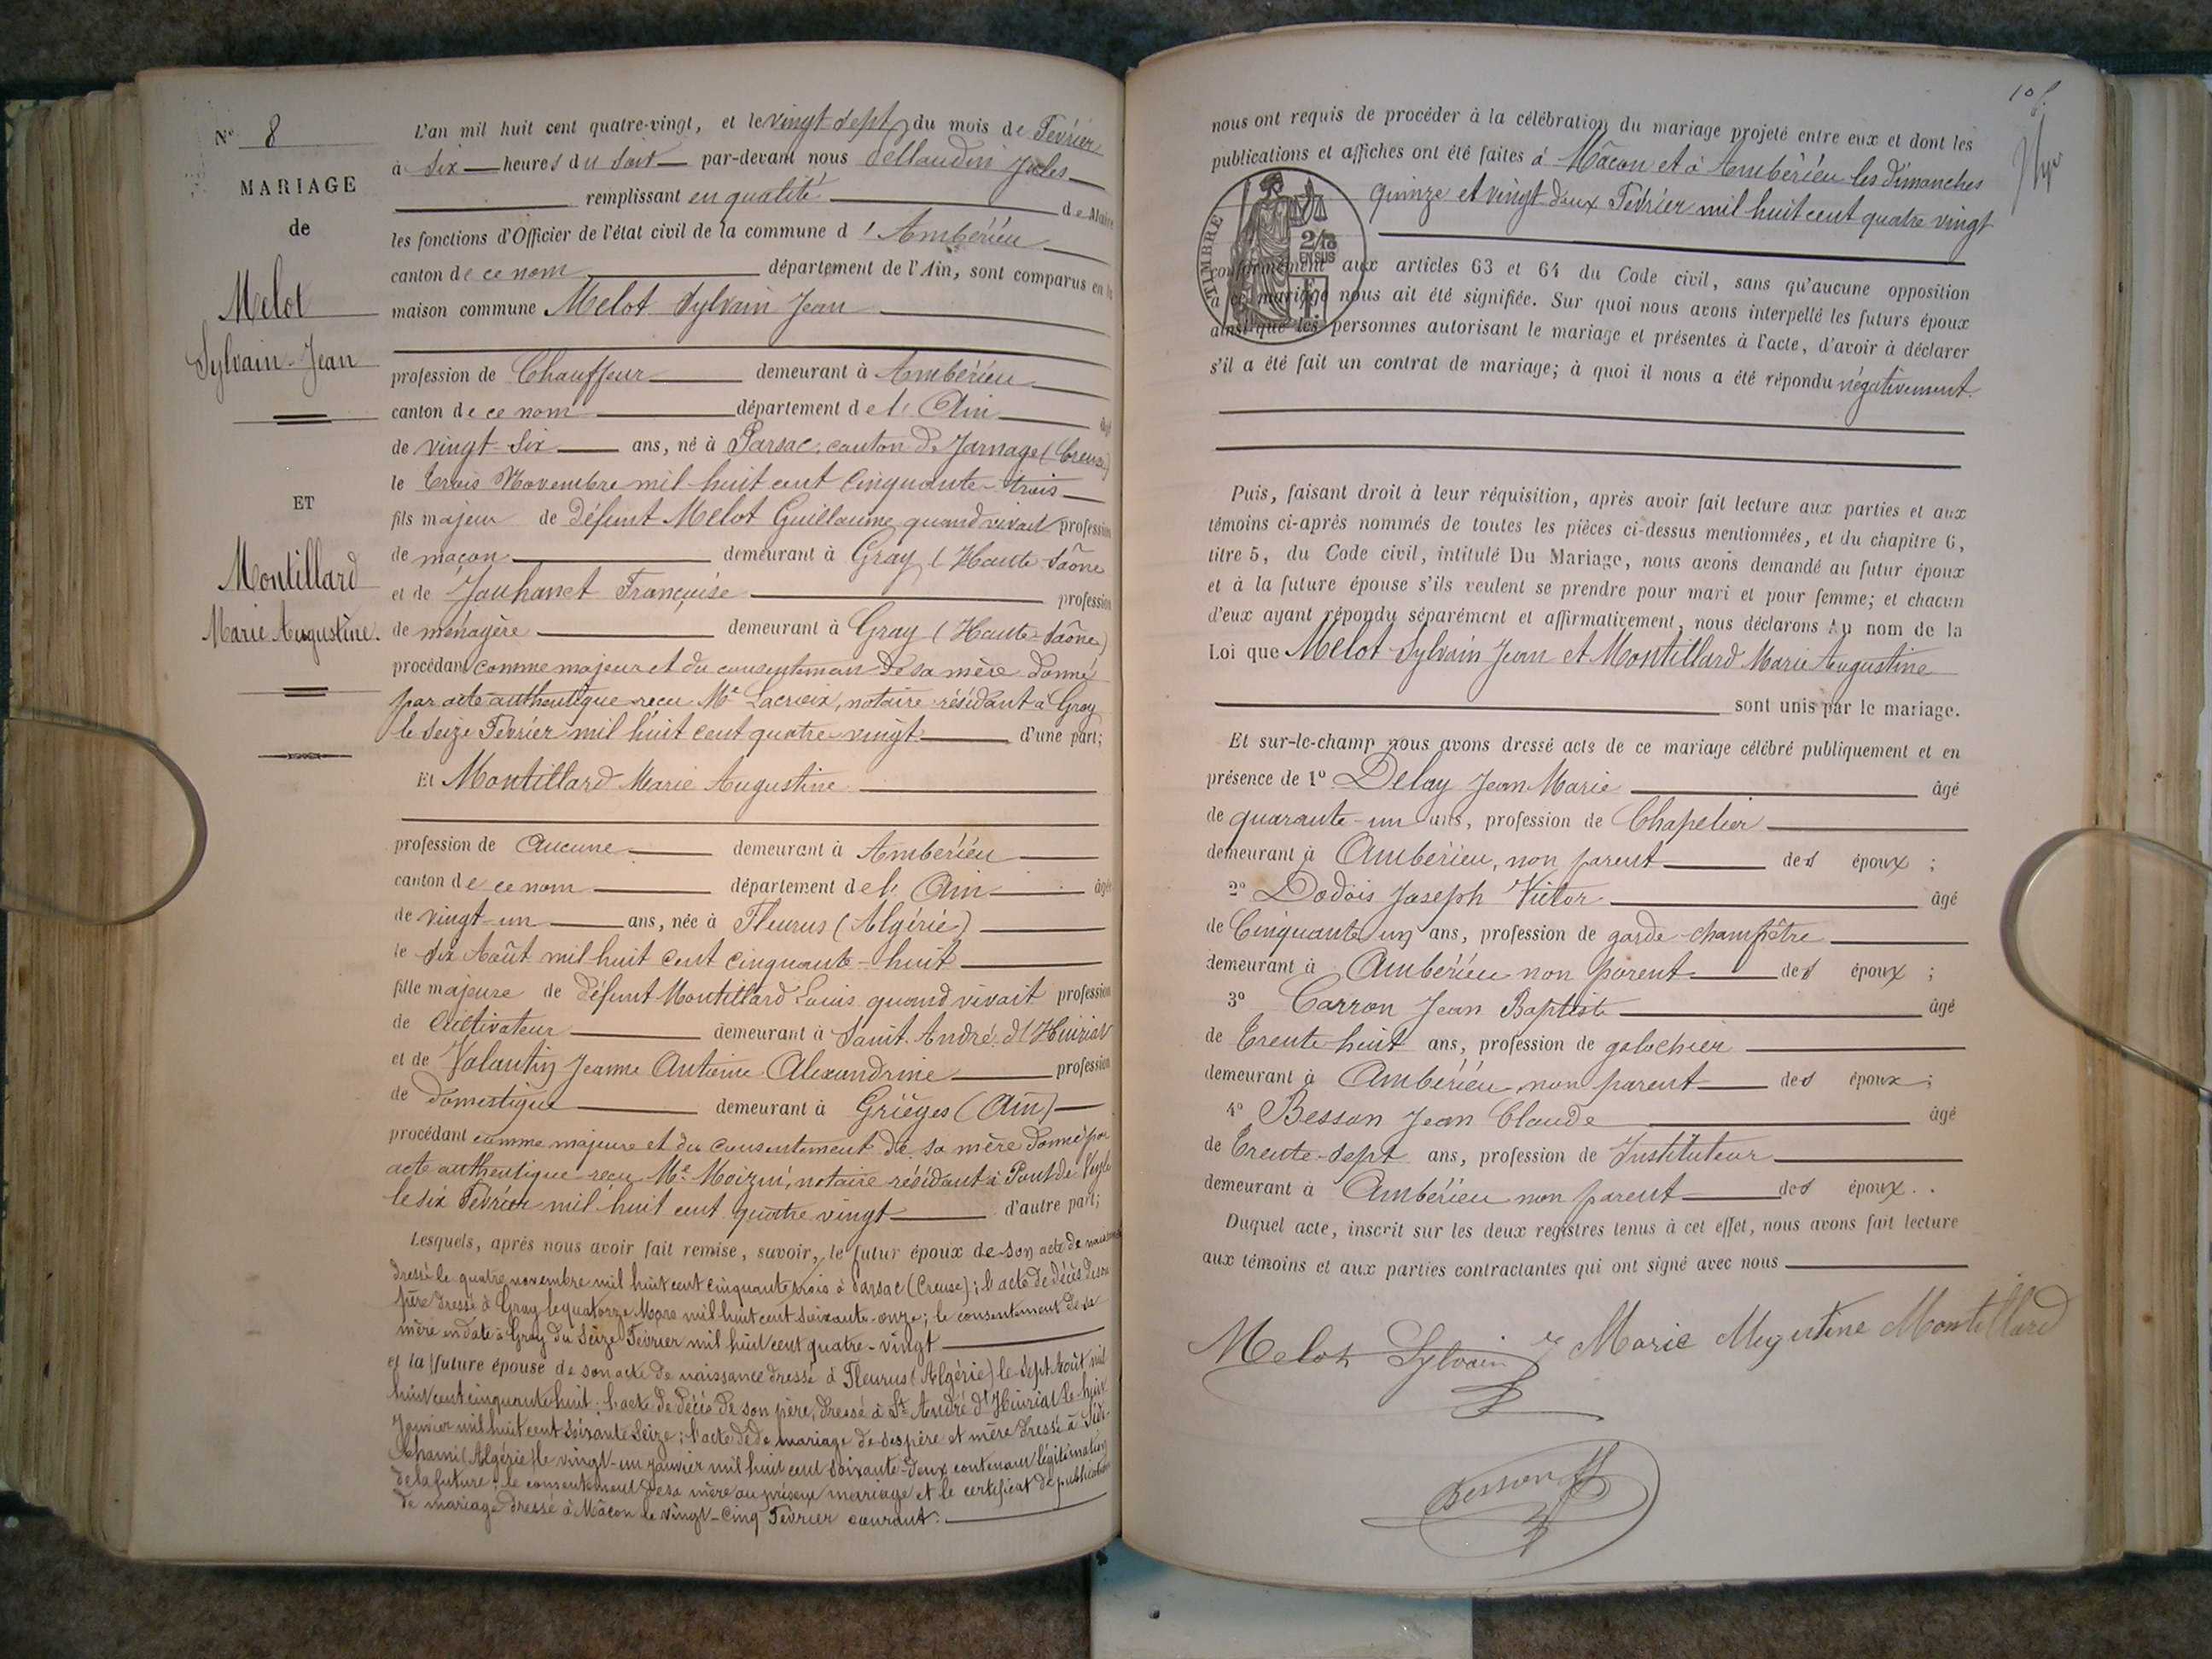 N° 8
MARIAGE
de
Melot
Sylvain-Jean
ET
Montillard
Marie Augustine.
L'an mil huit cent quatre-vingt, et le vingt sept du mois de Février
à six heures du soir par-devant nous Jules
remplissant en qualité de Maire
les fonctions d'Officier de l'état civil de la commune d'Ambérieu
canton de ce nom département de l'Ain, sont comparus en la
maison commune Melot Sylvain Jean
profession de Chauffeur demeurant à Ambérieu
canton de ce nom département de l'Ain âgé
de vingt-six ans, né à Parsac, canton de Jarnage (Creuse)
le trois Novembre mil-huit cent cinquante-trois
fils majeur de défunt Melot Guillaume, quand vivait profession
de maçon demeurant à Gray (Haute-Saône
et de Jouhanet Françoise profession
de ménagère demeurant à Gray (Haute-Saône)
procédant comme majeur et du consentement de sa mère donné
par acte authentique reçu Me notaire résidant à Gray
le seize Février mil huit cent quatre-vingt d'une part;
Et Montillard Marie Augustine
profession de Aucune demeurant à Ambérieu
canton de ce nom département de l'Ain âgée
de vingt-un ans, née à Fleurus (Algérie)
le six Août mil huit cent cinquante-huit
fille majeure de défunt Montillard Louis quand vivait profession
de Cultivateur demeurant à Saint-André d'Huiriat
et de Valantin Jeanne Antoinie Alexandrine profession
de domestique demeurant à Grièges (Ain)
procédant comme majeure et du consentement de sa mère donné par
acte authentique reçu Me notaire résidant à Pont de Veyle
le six Février mil huit cent quatre vingt d'autre part;
Lesquels, après nous avoir fait remise, savoir, le futur époux de son acte de naissance
dressé le quatre novembre mil huit cent cinquante trois à Parsac (Creuse); l'acte de décès de son
père dressé à Gray le quatorze Mars mil huit cent soixante-onze; le consentement de sa
mère en date à Gray du seize Février mil huit cent quatre-vingt
et la future épouse de son acte de naissance dressé à Fleurus (Algérie) le sept Août mil
huit cent cinquante huit; l'acte de décès de son père, dressé à St André d'Huiriat le huit
Janvier mil huit cent soixante seize; l'acte de de mariage de ses père et mère dressé à Sidi-
Chami (Algérie) le vingt-un janvier mil huit cent soixante-deux contenant légitimation
de la future; le consentement de sa mère au mariage et le certificat de publication
de mariage dressé à Mâcon le vingt-cinq Février courant.
nous ont requis de procéder à la célébration du mariage projeté entre eux et dont les
publications et affiches ont été faites à Mâcon et à Ambérieu les dimanches
quinze et vingt-deux Février mil huit cent quatre vingt
TIMBRE
2/10
EN SUS
conformément aux articles 63 et 64 du Code civil, sans qu'aucune opposition
ce mariage nous ait été signifiée. Sur quoi nous avons interpellé les futurs époux
ainsi que les personnes autorisant le mariage et présentes à l'acte, d'avoir à déclarer
s'il a été fait un contrat de mariage; à quoi il nous a été répondu négativement.
Puis, faisant droit à leur réquisition, après avoir fait lecture aux parties et aux
témoins ci-après nommés de toutes les pièces ci-dessus mentionnées, et du chapitre 6,
titre 5, du Code civil, intitulé Du Mariage, nous avons demandé au futur époux
et à la future épouse s'ils veulent se prendre pour mari et pour femme; et chacun
d'eux ayant répondu séparément et affirmativement, nous déclarons Au nom de la
Loi que Melot Sylvain Jean et Montillard Marie Augustine
sont unis par le mariage.
Et sur-le-champ nous avons dressé acte de ce mariage célébré publiquement et en
présence de 1° Delay Jean Marie âgé
de quarante-un ans, profession de Chapelier
demeurant à Ambérieu, non parent des époux ;
2° Dodois Joseph Victor âgé
de Cinquante un ans, profession de garde-champêtre
demeurant à Ambérieu non parent des époux ;
3° Carron Jean Baptiste âgé
de Trente-huit ans, profession de galochier
demeurant à Ambérieu non parent des époux ;
4° Besson Jean Claude âgé
de Trente-sept ans, profession de Instituteur
demeurant à Ambérieu non parent des époux..
Duquel acte, inscrit sur les deux registres tenus à cet effet, nous avons fait lecture
aux témoins et aux parties contractantes qui ont signé avec nous
Melot Sylvain Marie Montillard
Besson